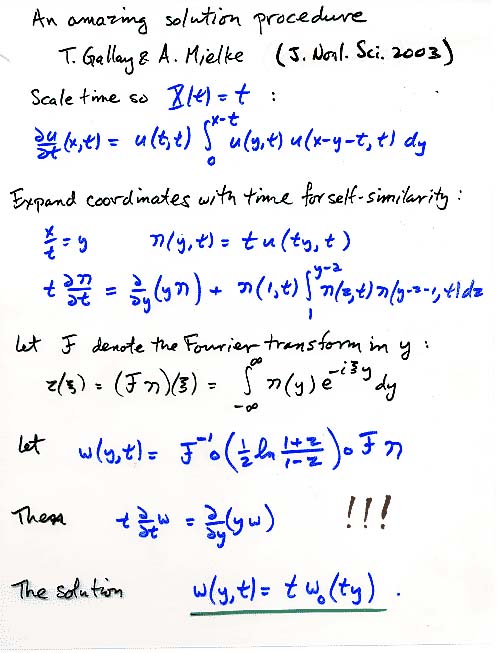 An amazing solution procedure
T. Gallay & A. Mielke (J. Nonl. Sci. 2003)
Scale time so X(t) = t :
∂u/∂t (x,t) = u(t,t) ∫_0^{x-t} u(y,t) u(x-y-t,t) dy
Expand coordinates with time for self-similarity :
x/t = y n(y,t) = t u(ty,t)
t ∂n/∂t = ∂/∂y (yn) + n(1,t) ∫_1^{y-2} n(z,t) n(y-z-1,t) dz
Let F denote the Fourier transform in y :
z(ξ) = (F n)(ξ) = ∫_{-∞}^{∞} n(y) e^{-iξy} dy
Let w(y,t) = F^{-1} ∘ (½ ln (1+z)/(1-z)) ∘ F n
Then t ∂/∂t w = ∂/∂y (yw) !!!
The solution w(y,t) = t w_0(ty) .